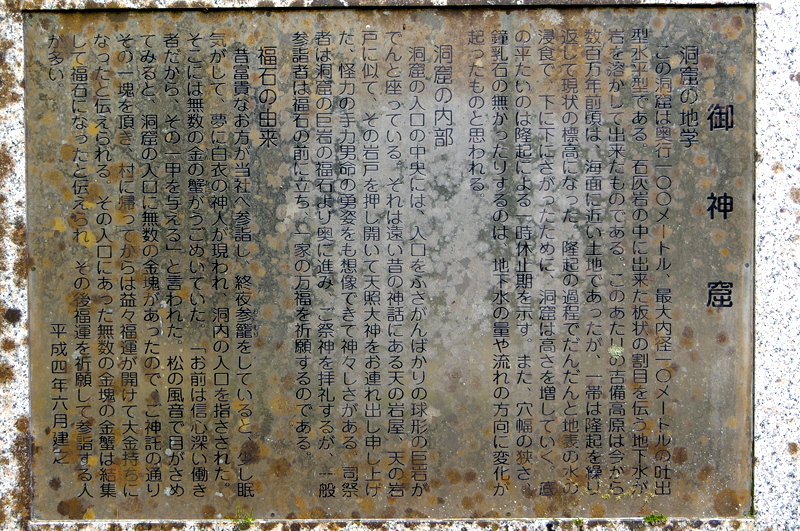 御神窟
洞窟の地学
この洞窟は奥行一〇〇メートル、最大内径一〇メートルの吐出
型水平型である。石灰岩の中に出来た板状の割目を伝う地下水が
岩を溶かして出来たものである。このあたりの吉備高原は今から
数百万年前頃は、海面に近い土地であったが、一帯は隆起を繰り
返して現状の標高になった。隆起の過程でだんだんと地表の水の
浸食で、下に下にさがったために、洞窟は高さを増していく。底
の平たいのは隆起による一時休止期を示す。また、穴幅の狭さ、
鐘乳石の無かったりするのは、地下水の量や流れの方向に変化が
起ったものと思われる。
洞窟の内部
洞窟の入口の中央には、入口をふさがんばかりの球形の巨岩が
でんと座っている。それは遠い昔の神話にある天の岩屋、天の岩
戸に似て、その岩戸を押し開いて天照大神をお連れ出し申し上げ
た、怪力の手力男命の勇姿をも想像できて神々しさがある。司祭
者は洞窟の巨岩の福石より奥に進み、ご祭神を拝礼するが、一般
参詣者は福石の前に立ち、一家の万福を祈願するのである。
福石の由来
昔富貴なお方が当社へ参詣し、終夜参籠をしていると、少し眠
気がして、夢に白衣の神人が現われ、洞内の入口を指さされた。
そこには無数の金の蟹がうごめいていた。「お前は信心深い働き
者だから、その一甲を与える」と言われた。松の風音で目がさめ
てみると、洞窟の入口に無数の金塊があったので、ご神託の通り
その一塊を頂き、村に帰ってからは益々福運が開けて大金持ちに
なったと伝えられる。その入口にあった無数の金塊の金蟹は結集
して福石になったと伝えられ、その後福運を祈願して参詣する人
が多い。
平成四年六月建之